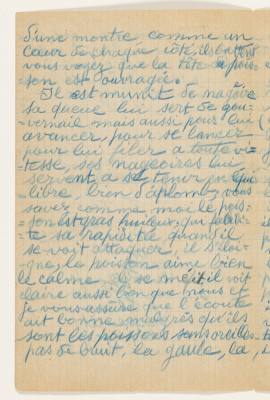 d'une montre comme un
cœur de chaque côté, ils battent
vous voyez que la tête du pois=
=son est ouvragée.
Il est munit de nageoire
sa queue lui sert de gou=
=vernail mais aussi pour lui
avancer, pour se lancer
pour lui filer a toute vi=
=tesse, ses nageoires lui
servent a se tenir en équi
libre, bien d'aplomb, vous
savez comme moi le pois=
=son est gras huileux, qui facili=
te sa rapidité quand il
se voit attaquer, il s'éloi=
gne, le poisson aime bien
le calme, il se méfit il voit
claire aussi bien que nous et
je vous assure que l'écoute
ait bonne malgrès qu'ils
sont les poissons sans oreilles
pas de bruit, la gaule, la